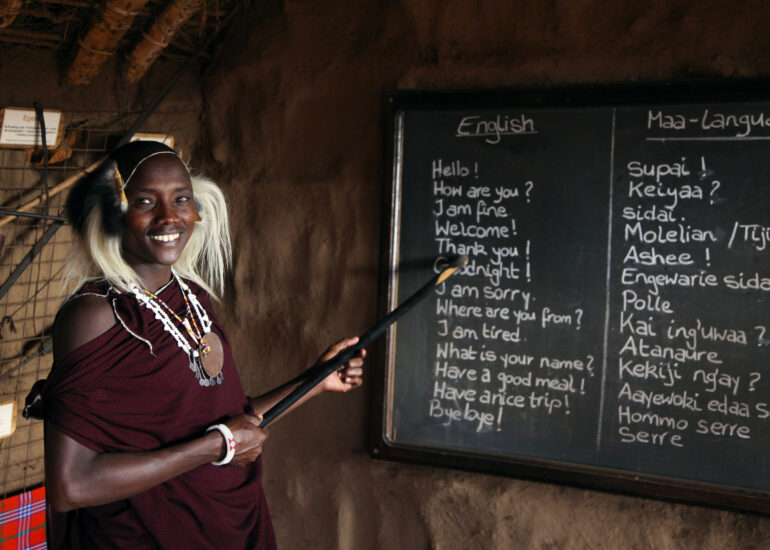 English
Hello!
How are you?
I am fine
Welcome!
Thank you!
Goodnight!
I am sorry.
Where are you from?
I am tired.
What is your name?
Have a good meal!
Have a nice trip!
Bye bye!
Maa-langu
Supai!
Keiyaa?
sidai.
Molelian / Tiji
Ashee!
Engewarie sida
Polle
Kai ing'uwaa?
Atanaure
Kekiji ng'ay?
Aayewoki edaa s
Hommo serre
Serre